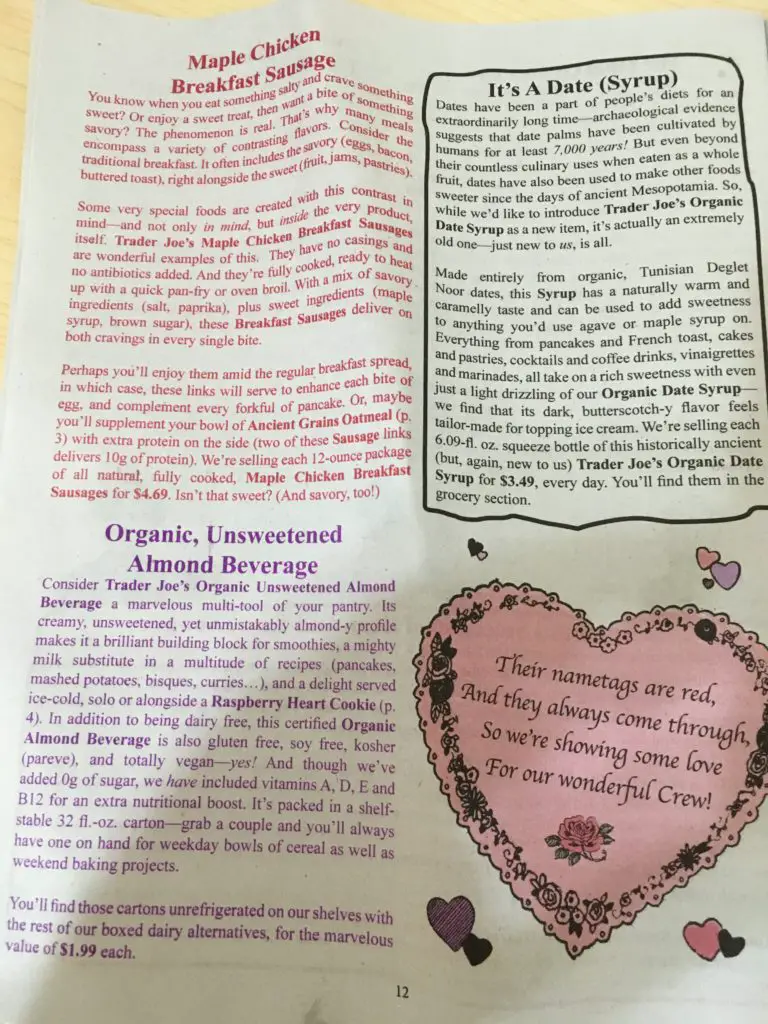 Maple Chicken
Breakfast Sausage
You know when you eat something salty and crave something
sweet? Or enjoy a sweet treat, then want a bite of something
savory? The phenomenon is real. That's why many meals
encompass a variety of contrasting flavors. Consider the
traditional breakfast. It often includes the savory (eggs, bacon,
buttered toast), right alongside the sweet (fruit, jams, pastries).
Some very special foods are created with this contrast in
mind—and not only in mind, but inside the very product,
itself. Trader Joe's Maple Chicken Breakfast Sausages
are wonderful examples of this. They have no casings and
no antibiotics added. And they're fully cooked, ready to heat
up with a quick pan-fry or oven broil. With a mix of savory
ingredients (salt, paprika), plus sweet ingredients (maple
syrup, brown sugar), these Breakfast Sausages deliver on
both cravings in every single bite.
Perhaps you'll enjoy them amid the regular breakfast spread,
in which case, these links will serve to enhance each bite of
egg, and complement every forkful of pancake. Or, maybe
you'll supplement your bowl of Ancient Grains Oatmeal (p.
3) with extra protein on the side (two of these Sausage links
delivers 10g of protein). We're selling each 12-ounce package
of all natural, fully cooked, Maple Chicken Breakfast
Sausages for $4.69. Isn't that sweet? (And savory, too!)
Organic, Unsweetened
Almond Beverage
Consider Trader Joe's Organic Unsweetened Almond
Beverage a marvelous multi-tool of your pantry. Its
creamy, unsweetened, yet unmistakably almond-y profile
makes it a brilliant building block for smoothies, a mighty
milk substitute in a multitude of recipes (pancakes,
mashed potatoes, bisques, curries…), and a delight served
ice-cold, solo or alongside a Raspberry Heart Cookie (p.
4). In addition to being dairy free, this certified Organic
Almond Beverage is also gluten free, soy free, kosher
(pareve), and totally vegan—yes! And though we've
added 0g of sugar, we have included vitamins A, D, E and
B12 for an extra nutritional boost. It's packed in a shelf-
stable 32 fl.-oz. carton—grab a couple and you'll always
have one on hand for weekday bowls of cereal as well as
weekend baking projects.
You'll find those cartons unrefrigerated on our shelves with
the rest of our boxed dairy alternatives, for the marvelous
value of $1.99 each.
It's A Date (Syrup)
Dates have been a part of people's diets for an
extraordinarily long time—archaeological evidence
suggests that date palms have been cultivated by
humans for at least 7,000 years! But even beyond
their countless culinary uses when eaten as a whole
fruit, dates have also been used to make other foods
sweeter since the days of ancient Mesopotamia. So,
while we'd like to introduce Trader Joe's Organic
Date Syrup as a new item, it's actually an extremely
old one—just new to us, is all.
Made entirely from organic, Tunisian Deglet
Noor dates, this Syrup has a naturally warm and
caramelly taste and can be used to add sweetness
to anything you'd use agave or maple syrup on.
Everything from pancakes and French toast, cakes
and pastries, cocktails and coffee drinks, vinaigrettes
and marinades, all take on a rich sweetness with even
just a light drizzling of our Organic Date Syrup—
we find that its dark, butterscotch-y flavor feels
tailor-made for topping ice cream. We're selling each
6.09-fl. oz. squeeze bottle of this historically ancient
(but, again, new to us) Trader Joe's Organic Date
Syrup for $3.49, every day. You'll find them in the
grocery section.
Their nametags are red,
And they always come through,
So we're showing some love
For our wonderful Crew!
12